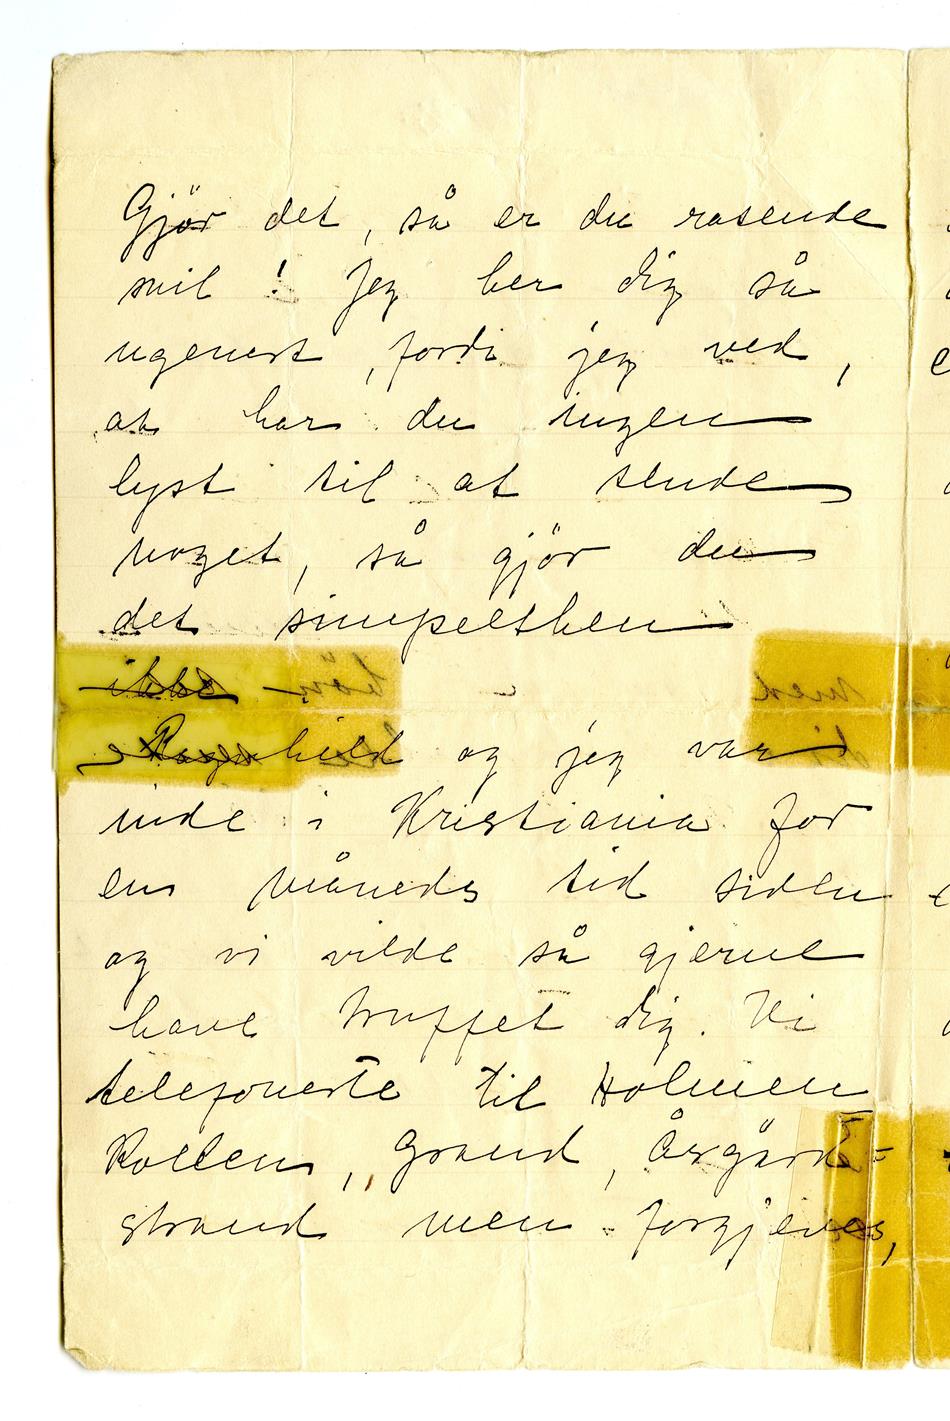 Gjör det, så er du rasende
snil! Jeg ber dig så
ugenert, fordi jeg ved,
at har du ingen
lyst til at sende
noget, så gjör du
det simpelthen
ikke
Ragnhild og jeg var
inde i Kristiania for
en måneds tid siden
og vi vilde så gjerne
have truffet dig. Vi
telefonerte til Holmen
Kollen, Grand, Åsgård=
strand men forgjeves,